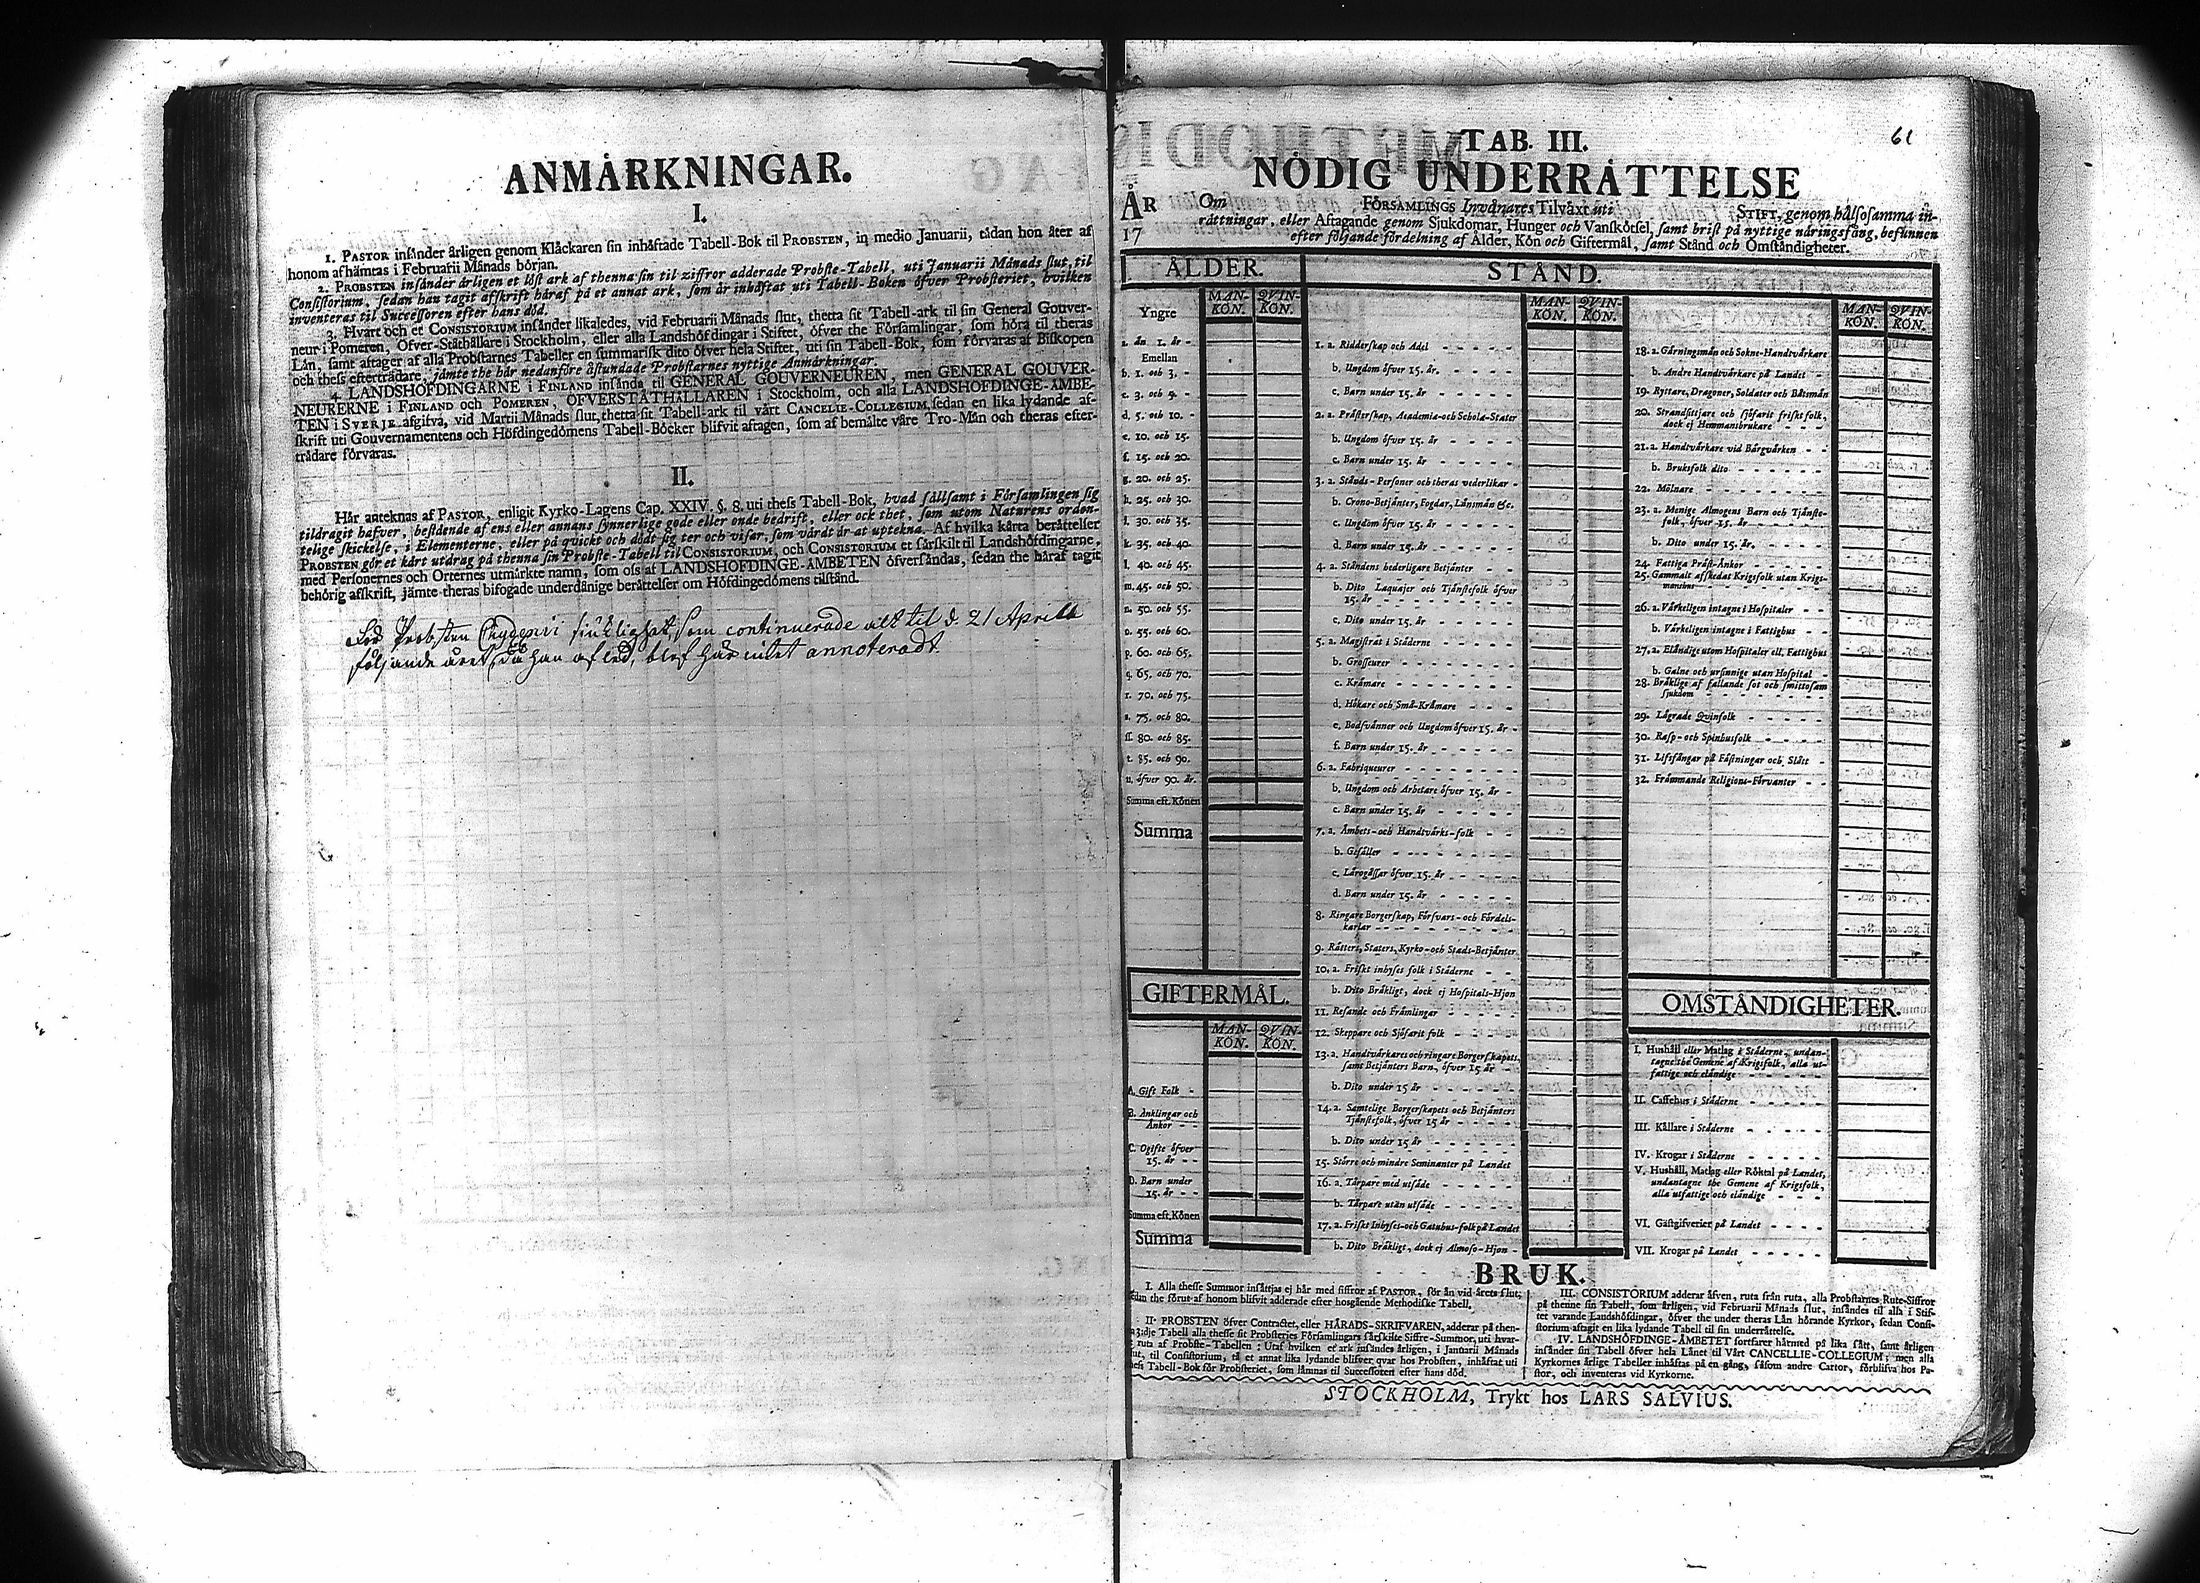 ANMÄRKNINGAR.
I.
1. PASTOR insånder årligen genom Klåckaren sin inhåftade Tabell-Bok til PROBSTEN, in medio Januarii, tådan hon åter af
honom afhåmtas i Februarii Månads början.
2. PROBSTEN insånder årligen et löst ark af thenna sin til ziffror adderade Probste-Tabell, uti Januarii Månads slut, til
Consistorium, sedan han tagit afskrift håraf på et annat ark, som år inhåftat uti Tabell-Boken öfver Probsteriet, hvilken
inventeras til Successoren efter hans död.
3. Hvart och et CONSISTORIUM insånder likaledes, vid Februarii Månads slut, thetta sit Tabell-ark til sin General Gouver-
neur i Pomeren, Öfver-Ståthållare i Stockholm, eller alla Landshöfdingar i Stiftet, öfver the Församlingar, som höra til theras
Lån, samt aftager af alla Probstarnes Tabeller en summarisk dito öfver hela Stiftet, uti sin Tabell-Bok, som förvaras af Biskopen
och thess eftertrådare, jämte the hår nedanföre åstundade Probstarnes nyttige Anmårkningar.
4. LANDSHÖFDINGARNE i FINLAND insånda til GENERAL GOUVERNEUREN, men GENERAL GOUVER-
NEURERNE i FINLAND och POMEREN, ÖFVERSTÅTHÅLLAREN i Stockholm, och alla LANDSHÖFDINGE-ÅMBE-
TEN i SVERJE afgifva, vid Martii Månads slut, thetta sit Tabell-ark til vårt CANCELIE-COLLEGIUM, sedan en lika lydande af-
skrift uti Gouvernamentens och Höfdingedömens Tabell-Böcker blifvit aftagen, som af bemålte våre Tro-Mån och theras efter-
trådare förvaras.
II.
Hår anteknas af PASTOR, enligit Kyrko-Lagens Cap. XXIV. §. 8. uti thess Tabell-Bok, hvad sållsamt i Församlingen sig
tildragit hafver, bestående af ens eller annans synnerlige gode eller onde bedrift, eller ock thet, som utom Naturens orden-
telige skickelse, i Elementerne, eller på qvickt och dödt sig ter och visar, som vårdt år at uptekna. Af hvilka kårta beråttelser
PROBSTEN gör et kårt utdrag på thenna sin Probste-Tabell til CONSISTORIUM, och CONSISTORIUM et sårskilt til Landshöfdingarne,
med Personernes och Orternes utmårkte namn, som oss af LANDSHÖFDINGE-ÅMBETEN öfversåndas, sedan the håraf tagit
behörig afskrift, jämte theras bifogade underdånige beråttelser om Höfdingedömens tilstånd.
För Probsten Chydenii siuklighet, som continuerade alt til d. 21 Aprill
följande året, då han afled, blef här intet annoteradt.
TAB. III.
61
NÖDIG UNDERRÅTTELSE
ÅR 17
Om FÖRSAMLINGS Invånares Tilvåxt uti STIFT, genom hålsosamma in-
råttningar, eller Aftagande genom Sjukdomar, Hunger och Vanskötsel, samt brist på nyttige nåringsfång, befunnen
efter följande fördelning af Ålder, Kön och Giftermål, samt Stånd och Omståndigheter.
ÅLDER.
MAN-KÖN. QVIN-KÖN.
Yngre
a. ån 1. år -
Emellan
b. 1. och 3. -
c. 3. och 5. -
d. 5. och 10. -
e. 10. och 15.
f. 15. och 20.
g. 20. och 25.
h. 25. och 30.
i. 30. och 35.
k. 35. och 40.
l. 40. och 45.
m. 45. och 50.
n. 50. och 55.
o. 55. och 60.
p. 60. och 65.
q. 65. och 70.
r. 70. och 75.
s. 75. och 80.
ss. 80. och 85.
t. 85. och 90.
u. öfver 90. år.
Summa eft. Könen
Summa
GIFTERMÅL.
MAN-KÖN. QVIN-KÖN.
A. Gift Folk -
B. Änklingar och
Änkor - -
C. Ogifte öfver
15. år - -
D. Barn under
15. år - -
Summa eft. Könen
Summa
STÅND.
MAN-KÖN. QVIN-KÖN.
1. a. Ridderskap och Adel
b. Ungdom öfver 15. år.
c. Barn under 15. år
2. a. Pråsterskap, Academia-och Schola-Stater
b. Ungdom öfver 15. år
c. Barn under 15. år
3. a. Stånds-Personer och theras vederlikar -
b. Crono-Betjänter, Fogdar, Länsmån &c.
c. Ungdom öfver 15. år
d. Barn under 15. år
4. a. Ståndens hederligare Betjänter
b. Dito Laquajer och Tjänstefolk öfver
15. år
c. Dito under 15. år
5. a. Magistrat i Ståderne
b. Grosseurer
c. Kråmare
d. Hökare och Små-Kråmare
e. Bodsvånner och Ungdom öfver 15. år -
f. Barn under 15. år
6. a. Fabriqueurer
b. Ungdom och Arbetare öfver 15. år -
c. Barn under 15. år
7. a. Åmbets-och Handtvårks-folk
b. Gesåller
c. Lårogåssar öfver 15. år
d. Barn under 15. år
8. Ringare Borgerskap, Försvars-och Fördels-
karlar
9. Råtters, Staters, Kyrko-och Stads-Betjänter
10. a. Friskt inhyses folk i Ståderne
b. Dito Bråkligt, dock ej Hospitals-Hjon
11. Resande och Fråmlingar
12. Skeppare och Sjöfarit folk
13. a. Handtvårkares och ringare Borgerskapets,
samt Betjänters Barn, öfver 15 år
b. Dito under 15 år
14. a. Samtelige Borgerskapets och Betjänters
Tjänstefolk, öfver 15 år
b. Dito under 15 år
15. Större och mindre Seminanter på Landet
16. a. Tårpare med utsåde
b. Tårpare utan utsåde
17. a. Friskt Inhyses-och Gatuhus-folk på Landet
b. Dito Bråkligt, dock ej Almoso-Hjon -
MAN-KÖN. QVIN-KÖN.
18. a. Gårningsmån och Sokne-Handtvårkare
b. Andre Handtvårkare på Landet -
19. Ryttare, Dragoner, Soldater och Båtsmån
20. Strandsittjare och sjöfarit friskt folk,
dock ej Hemmansbrukare
21. a. Handtvårkare vid Bårgvårken
b. Bruksfolk dito
22. Mölnare
23. a. Menige Almogens Barn och Tjänste-
folk, öfver 15. år
b. Dito under 15. år.
24. Fattiga Pråst-Ånkor
25. Gammalt afskedat Krigsfolk utan Krigs-
mansbus
26. a. Vårkeligen intagne i Hospitaler
b. Vårkeligen intagne i Fattighus
27. a. Elåndige utom Hospitaler ell. Fattighus
b. Galne och ursinnige utan Hospital -
28. Bråklige af fallande sot och smittosam
sjukdom
29. Lågrade Qvinfolk
30. Rasp-och Spinhusfolk
31. Lifsfångar på Fåstningar och Slått
32. Fråmmande Religions-Förvanter
OMSTÅNDIGHETER.
I. Hushåll eller Matlag i Ståderne, undan-
tagne the Gemene af Krigsfolk, alla ut-
fattige och elåndige
II. Caffehus i Ståderne
III. Kållare i Ståderne
IV. Krogar i Ståderne
V. Hushåll, Matlag eller Röktal på Landet,
undantagne the Gemene af Krigsfolk,
alla utfattige och elåndige
VI. Gåstgifverier på Landet
VII. Krogar på Landet
BRUK.
I. Alla thesse Summor insåttjas ej hår med siffror af PASTOR, för ån vid årets slut;
sedan the förut af honom blifvit adderade efter hosgående Methodiske Tabell.
II. PROBSTEN öfver Contractet, eller HÅRADS-SKRIFVAREN, adderar på then-
na 3:dje Tabell alla thesse sit Probsteries Församlingars sårskilte Siffre-Summor, uti hvar-
ruta af Probste-Tabellen: Utaf hvilken et ark insåndes årligen, i Januarii Månads
slut, til Consistorium, tå et annat lika lydande blifver qvar hos Probsten, inhåftat uti
thess Tabell-Bok för Probsteriet, som låmnas til Successoren efter hans död.
III. CONSISTORIUM adderar åfven, ruta från ruta, alla Probstarnes Rute-Siffror
på thenne sin Tabell, som årligen, vid Februarii Månads slut, insåndes til alla i Stif-
tet varande Landshöfdingar, öfver the under theras Lån hörande Kyrkor, sedan Consi-
storium aftagit en lika lydande Tabell til sin underråttelse.
IV. LANDSHÖFDINGE-ÅMBETET fortfarer hårmed på lika sått, samt årligen
insånder sin Tabell öfver hela Lånet til Vårt CANCELLIE-COLLEGIUM; men alla
Kyrkornes årlige Tabeller inhåftas på en gång, såsom andre Cartor, förblifva hos Pa-
stor, och inventeras vid Kyrkorne.
STOCKHOLM, Trykt hos LARS SALVIUS.